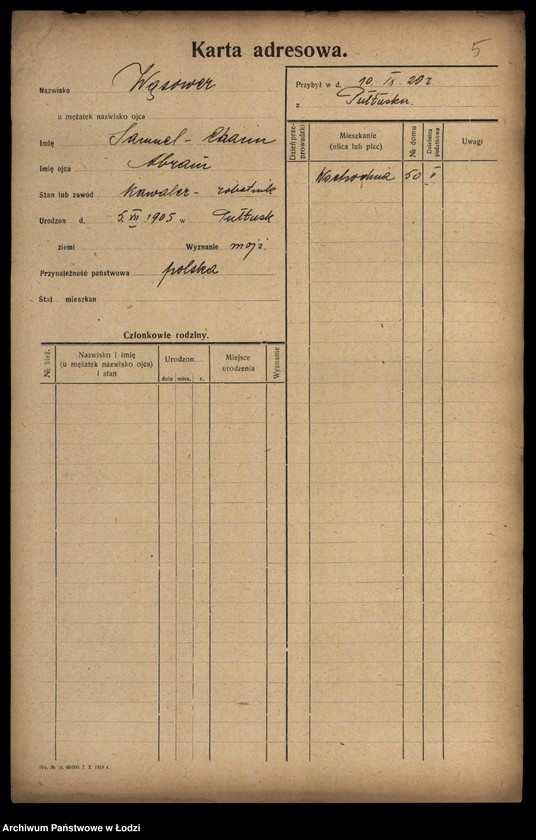 Karta adresowa.
5
Nazwisko Wąsower
u mężatek nazwisko ojca
Imię Samuel-Chaim
Imię ojca Abram
Stan lub zawód kawaler - robotnik
Urodzon d. 5.VII 1905 w Pułtusk
ziemi Wyznanie mojż.
Przynależność państwowa polska
Stał mieszkan
Przybył w d. 10. IX. 20 r.
z Pułtuska.
Dzień przeprowadzki
Mieszkanie
(ulica lub plac)
№ domu
Dzielnica podatkowa
Uwagi
Wschodnia 50 V
Członkowie rodziny.
№ bież.
Nazwisko i imię
(u mężatek nazwisko ojca)
i stan
Urodzon
dnia mies. r.
Miejsce
urodzenia
Wyznanie
X. 1919 r.
Archiwum Państwowe w Łodzi